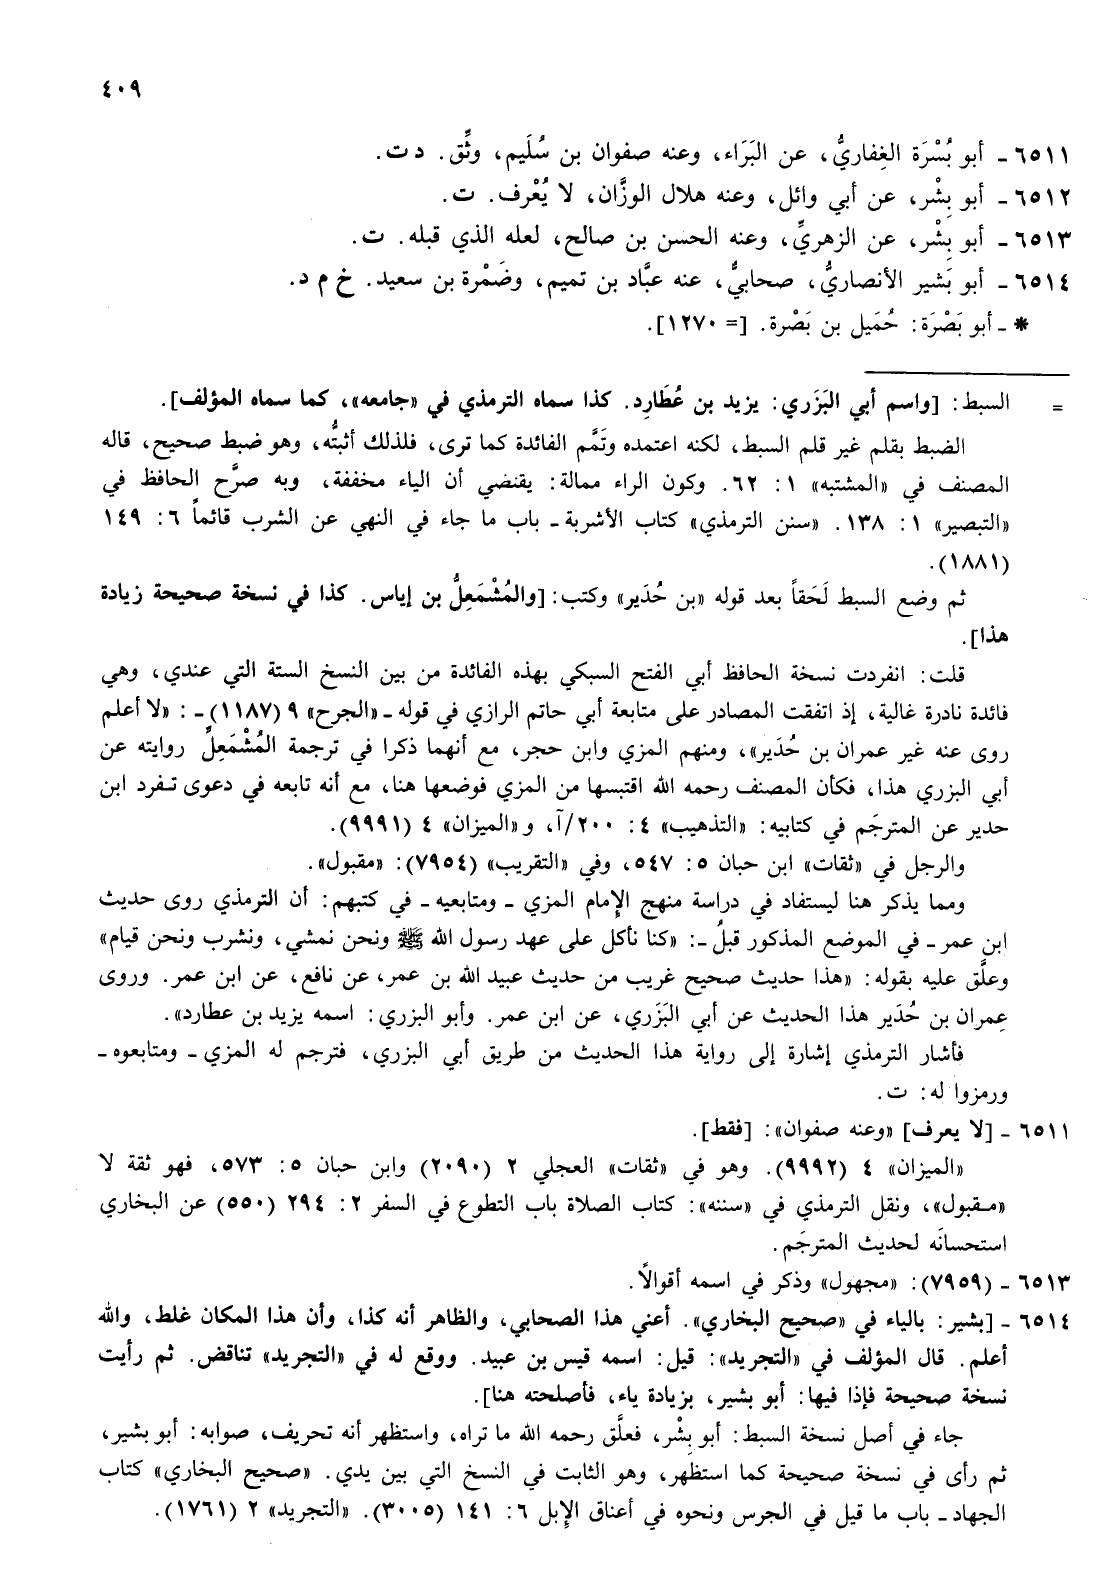 ٤٠٩
٦٥١١ ـ أبو بُسْرَة الغِفاريُّ، عن البَرَاء، وعنه صفوان بن سُلَيم، وثِّق. د ت.
٦٥١٢ ـ أبو بِشْر، عن أبي وائل، وعنه هلال الوزَّان، لا يُعْرف. ت.
٦٥١٣ ـ أبو بِشْر، عن الزهريِّ، وعنه الحسن بن صالح، لعله الذي قبله. ت.
٦٥١٤ ـ أبو بَشير الأنصاريُّ، صحابيُّ، عنه عبَّاد بن تميم، وضَمْرة بن سعيد. خ م د.
* ـ أبو بَصْرَة: حُمَيل بن بَصْرة. [= ١٢٧٠].
= السبط: [واسم أبي البَزَري: يزيد بن عُطَارِد. كذا سماه الترمذي في «جامعه»، كما سماه المؤلف].
الضبط بقلم غير قلم السبط، لكنه اعتمده وتَمَّم الفائدة كما ترى، فلذلك أثبتُّه، وهو ضبط صحيح، قاله
المصنف في «المشتبه» ١: ٦٢. وكون الراء ممالة: يقتضي أن الياء مخففة، وبه صرَّح الحافظ في
«التبصير» ١: ١٣٨. «سنن الترمذي» كتاب الأشربة ـ باب ما جاء في النهي عن الشرب قائماً ٦: ١٤٩
(١٨٨١).
ثم وضع السبط لَحَقاً بعد قوله «بن حُدَير» وكتب: [والمُشْمَعِلُّ بن إياس. كذا في نسخة صحيحة زيادة
هذا].
قلت: انفردت نسخة الحافظ أبي الفتح السبكي بهذه الفائدة من بين النسخ الستة التي عندي، وهي
فائدة نادرة غالية، إذ اتفقت المصادر على متابعة أبي حاتم الرازي في قوله ـ «الجرح» ٩ (١١٨٧) ـ: «لا أعلم
روى عنه غير عمران بن حُدَير»، ومنهم المزي وابن حجر، مع أنهما ذكرا في ترجمة المُشْمَعِلّ روايته عن
أبي البزري هذا، فكأن المصنف رحمه الله اقتبسها من المزي فوضعها هنا، مع أنه تابعه في دعوى تفرد ابن
حدير عن المترجَم في كتابيه: «التذهيب» ٤: ٢٠٠/آ، و«الميزان» ٤ (٩٩٩١).
والرجل في «ثقات» ابن حبان ٥: ٥٤٧، وفي «التقريب» (٧٩٥٤): «مقبول».
ومما يذكر هنا ليستفاد في دراسة منهج الإمام المزي ـ ومتابعيه ـ في كتبهم: أن الترمذي روى حديث
ابن عمر ـ في الموضع المذكور قبلُ ـ: «كنا نأكل على عهد رسول الله ﷺ ونحن نمشي، ونشرب ونحن قيام»
وعلَّق عليه بقوله: «هذا حديث صحيح غريب من حديث عبيد الله بن عمر، عن نافع، عن ابن عمر. وروى
عِمران بن حُدَير هذا الحديث عن أبي البَزَري، عن ابن عمر. وأبو البزري: اسمه يزيد بن عطارد».
فأشار الترمذي إشارة إلى رواية هذا الحديث من طريق أبي البزري، فترجم له المزي ـ ومتابعوه ـ
ورمزوا له: ت.
٦٥١١ ـ [لا يعرف] «وعنه صفوان»: [فقط].
«الميزان» ٤ (٩٩٩٢). وهو في «ثقات» العجلي ٢ (٢٠٩٠) وابن حبان ٥: ٥٧٣، فهو ثقة لا
«مقبول»، ونقل الترمذي في «سننه»: كتاب الصلاة باب التطوع في السفر ٢: ٢٩٤ (٥٥٠) عن البخاري
استحسانَه لحديث المترجَم.
٦٥١٣ ـ (٧٩٥٩): «مجهول» وذكر في اسمه أقوالاً.
٦٥١٤ ـ [بشير: بالياء في «صحيح البخاري». أعني هذا الصحابي، والظاهر أنه كذا، وأن هذا المكان غلط، والله
أعلم. قال المؤلف في «التجريد»: قيل: اسمه قيس بن عبيد. ووقع له في «التجريد» تناقض. ثم رأيت
نسخة صحيحة فإذا فيها: أبو بشير، بزيادة ياء، فأصلحته هنا].
جاء في أصل نسخة السبط: أبو بِشْر، فعلَّق رحمه الله ما تراه، واستظهر أنه تحريف، صوابه: أبو بشير،
ثم رأى في نسخة صحيحة كما استظهر، وهو الثابت في النسخ التي بين يدي. «صحيح البخاري» كتاب
الجهاد ـ باب ما قيل في الجرس ونحوه في أعناق الإبل ٦: ١٤١ (٣٠٠٥). «التجريد» ٢ (١٧٦١).